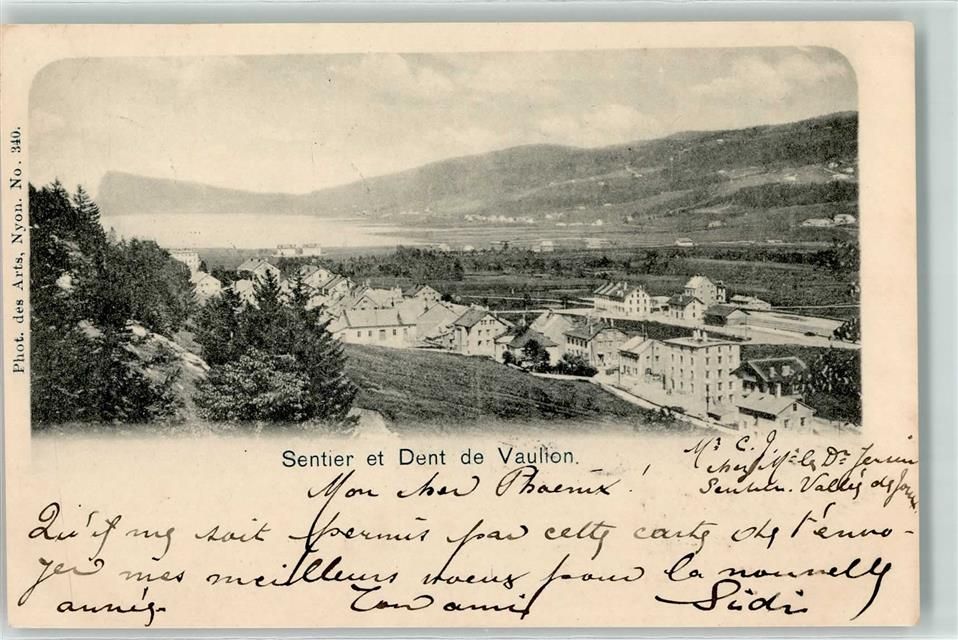 Phot. des Arts, Nyon. No. 340.
Sentier et Dent de Vaulion.
Mr. C. J.
chez Mr le Dr Yersin
Sentier. Vallée de Joux
Mon cher Phoenix !
Qu'il me soit permis par cette carte de t'envo-
yer mes meilleurs voeux pour la nouvelle
année.
Ton ami Südi